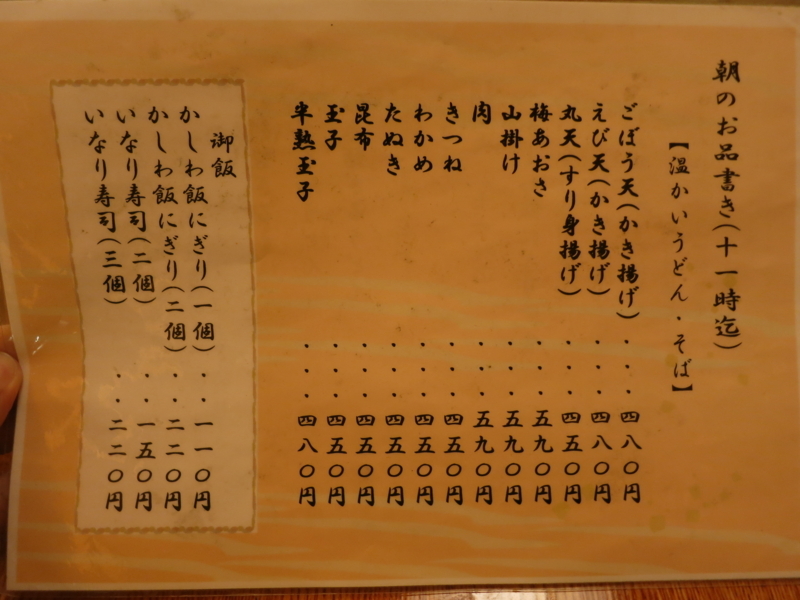 朝のお品書き(十一時迄)
【温かいうどん・そば】
ごぼう天(かき揚げ)・・・四八〇円
えび天(かき揚げ)・・・四八〇円
丸天(すり身揚げ)・・・四五〇円
梅あおさ・・・五九〇円
山掛け・・・五九〇円
肉・・・五九〇円
きつね・・・四五〇円
わかめ・・・四五〇円
たぬき・・・四五〇円
昆布・・・四五〇円
玉子・・・四五〇円
半熟玉子・・・四八〇円
御飯
かしわ飯にぎり(一個)・・一一〇円
かしわ飯にぎり(二個)・・二二〇円
いなり寿司(二個)・・一五〇円
いなり寿司(三個)・・二二〇円